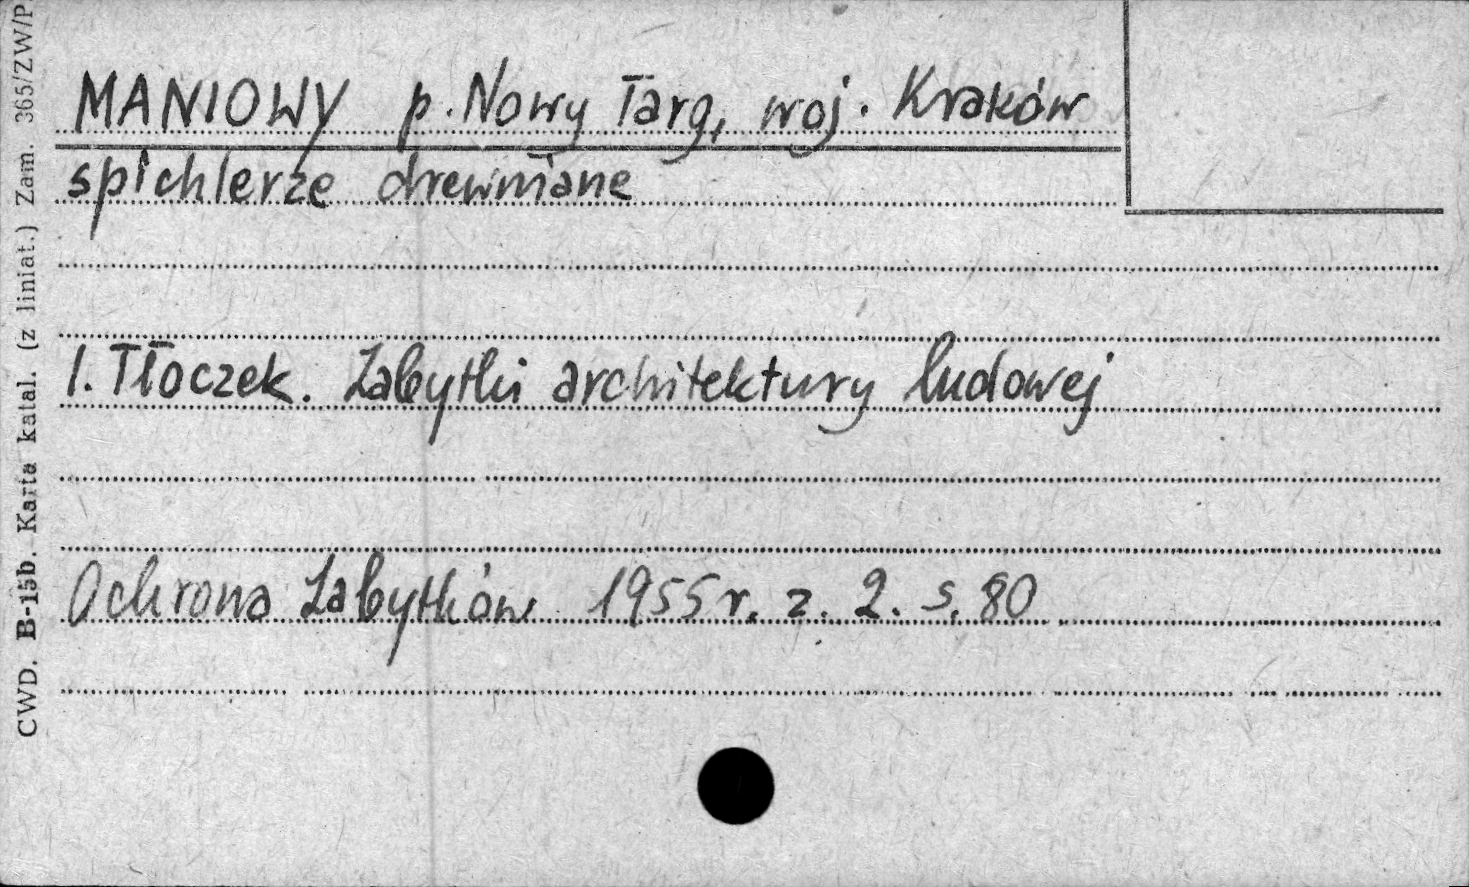 MANIOWY p. Nowy Targ, woj. Kraków
spichlerze drewniane
I. Tłoczek. Zabytki architektury ludowej
Ochrona Zabytków 1955 r. z. 2. s. 80
CWD. B-15b. Karta katal. (z liniat.) Zam. 365/ZW/P